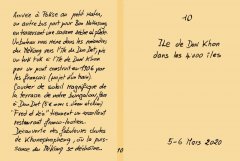 Arrivée à Pakse au petit matin,
un autre bus part pour Ban Nakasang
en traversant une savane sèche et plate.
Un bateau nous mène dans les méandres
du Mékong vers l'île de Don Det, puis
un tuk tuk à l'île de Don Khon
par un pont construit en 1906 par
les français (projet d'un train).
Coucher de soleil magnifique de
la terrasse de notre bungalow, face
à Don Det
"Fred et Léa" tiennent un excellent
restaurant franco-laotien.
Découverte des fabuleuses chutes
de Khonephapheng, où la puis-
sance du Mékong se déchaîne.
10
10
Île de Don Khon
dans les 4000 îles
5-6 Mars 2020